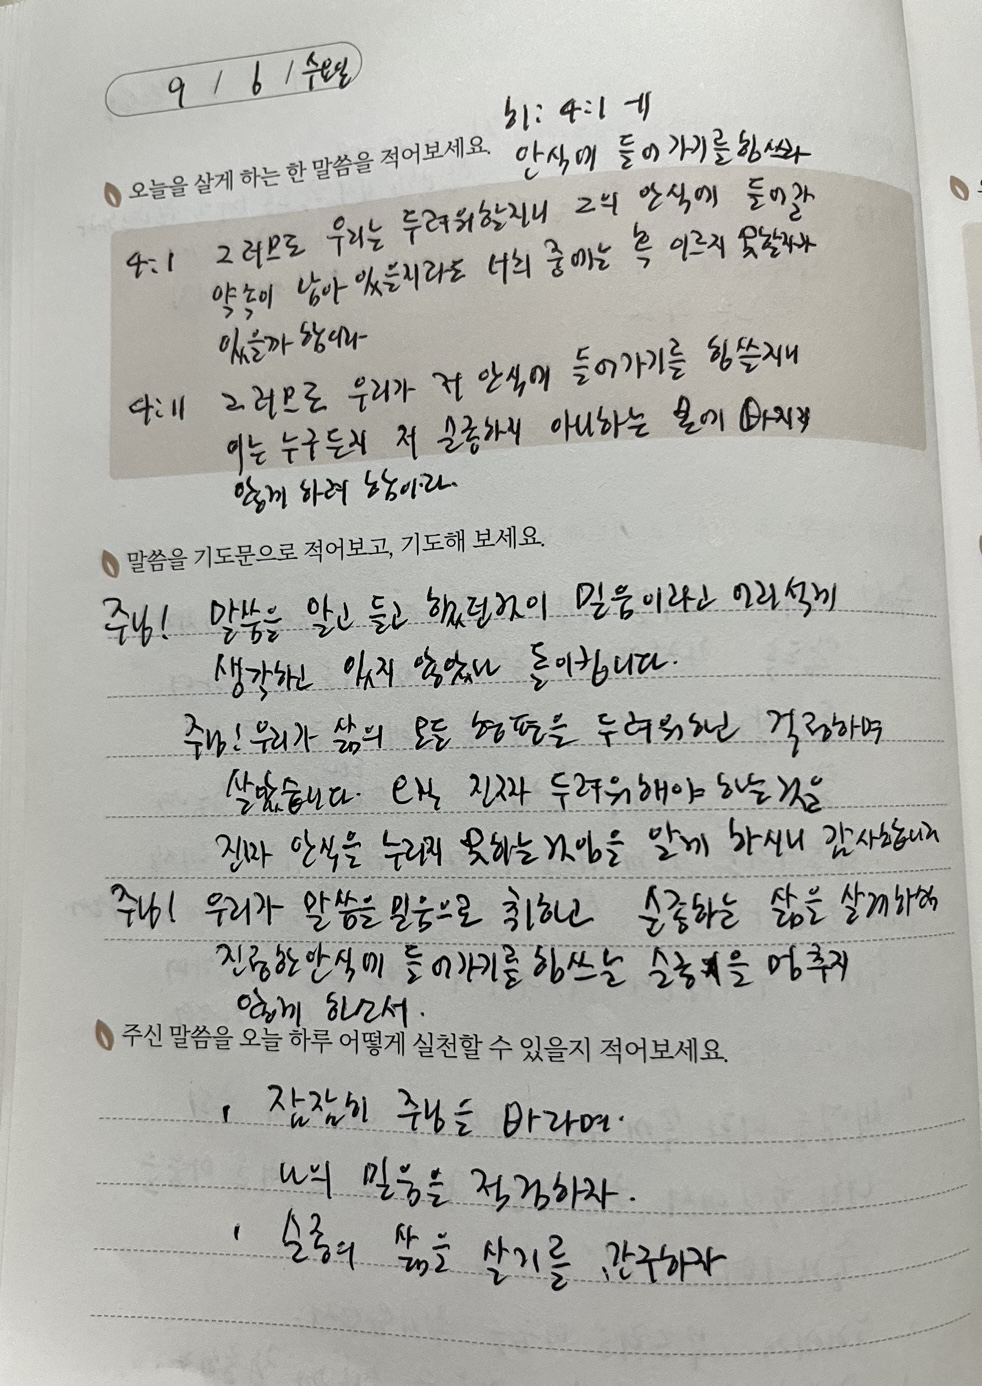 9 / 6 / 수요일
히: 4:1 -11
안식에 들어가기를 힘쓰라
오늘을 살게 하는 한 말씀을 적어보세요.
4:1 그러므로 우리는 두려워할지니 그의 안식에 들어갈
약속이 남아 있을지라도 너희 중에는 혹 이르지 못할자가
있을까 함이라
4:11 그러므로 우리가 저 안식에 들어가기를 힘쓸지니
이는 누구든지 저 순종하지 아니하는 본에 빠지지
않게 하려 함이라.
말씀을 기도문으로 적어보고, 기도해 보세요.
주님! 말씀을 알고 듣고 했던것이 믿음이라고 어리석게
생각하고 있지 않았나 돌이킵니다.
주님! 우리가 삶의 모든 형편을 두려워하고 걱정하며
살았습니다. 오직 진짜 두려워해야 하는것은
진짜 안식을 누리지 못하는것임을 알게 하시니 감사합니다
주님! 우리가 말씀을 믿음으로 취하고 순종하는 삶을 살게하여
진정한 안식에 들어가기를 힘쓰는 순종을 멈추지
않게 하소서.
주신 말씀을 오늘 하루 어떻게 실천할 수 있을지 적어보세요.
잠잠히 주님을 바라며.
나의 믿음을 점검하자.
순종의 삶을 살기를 간구하자